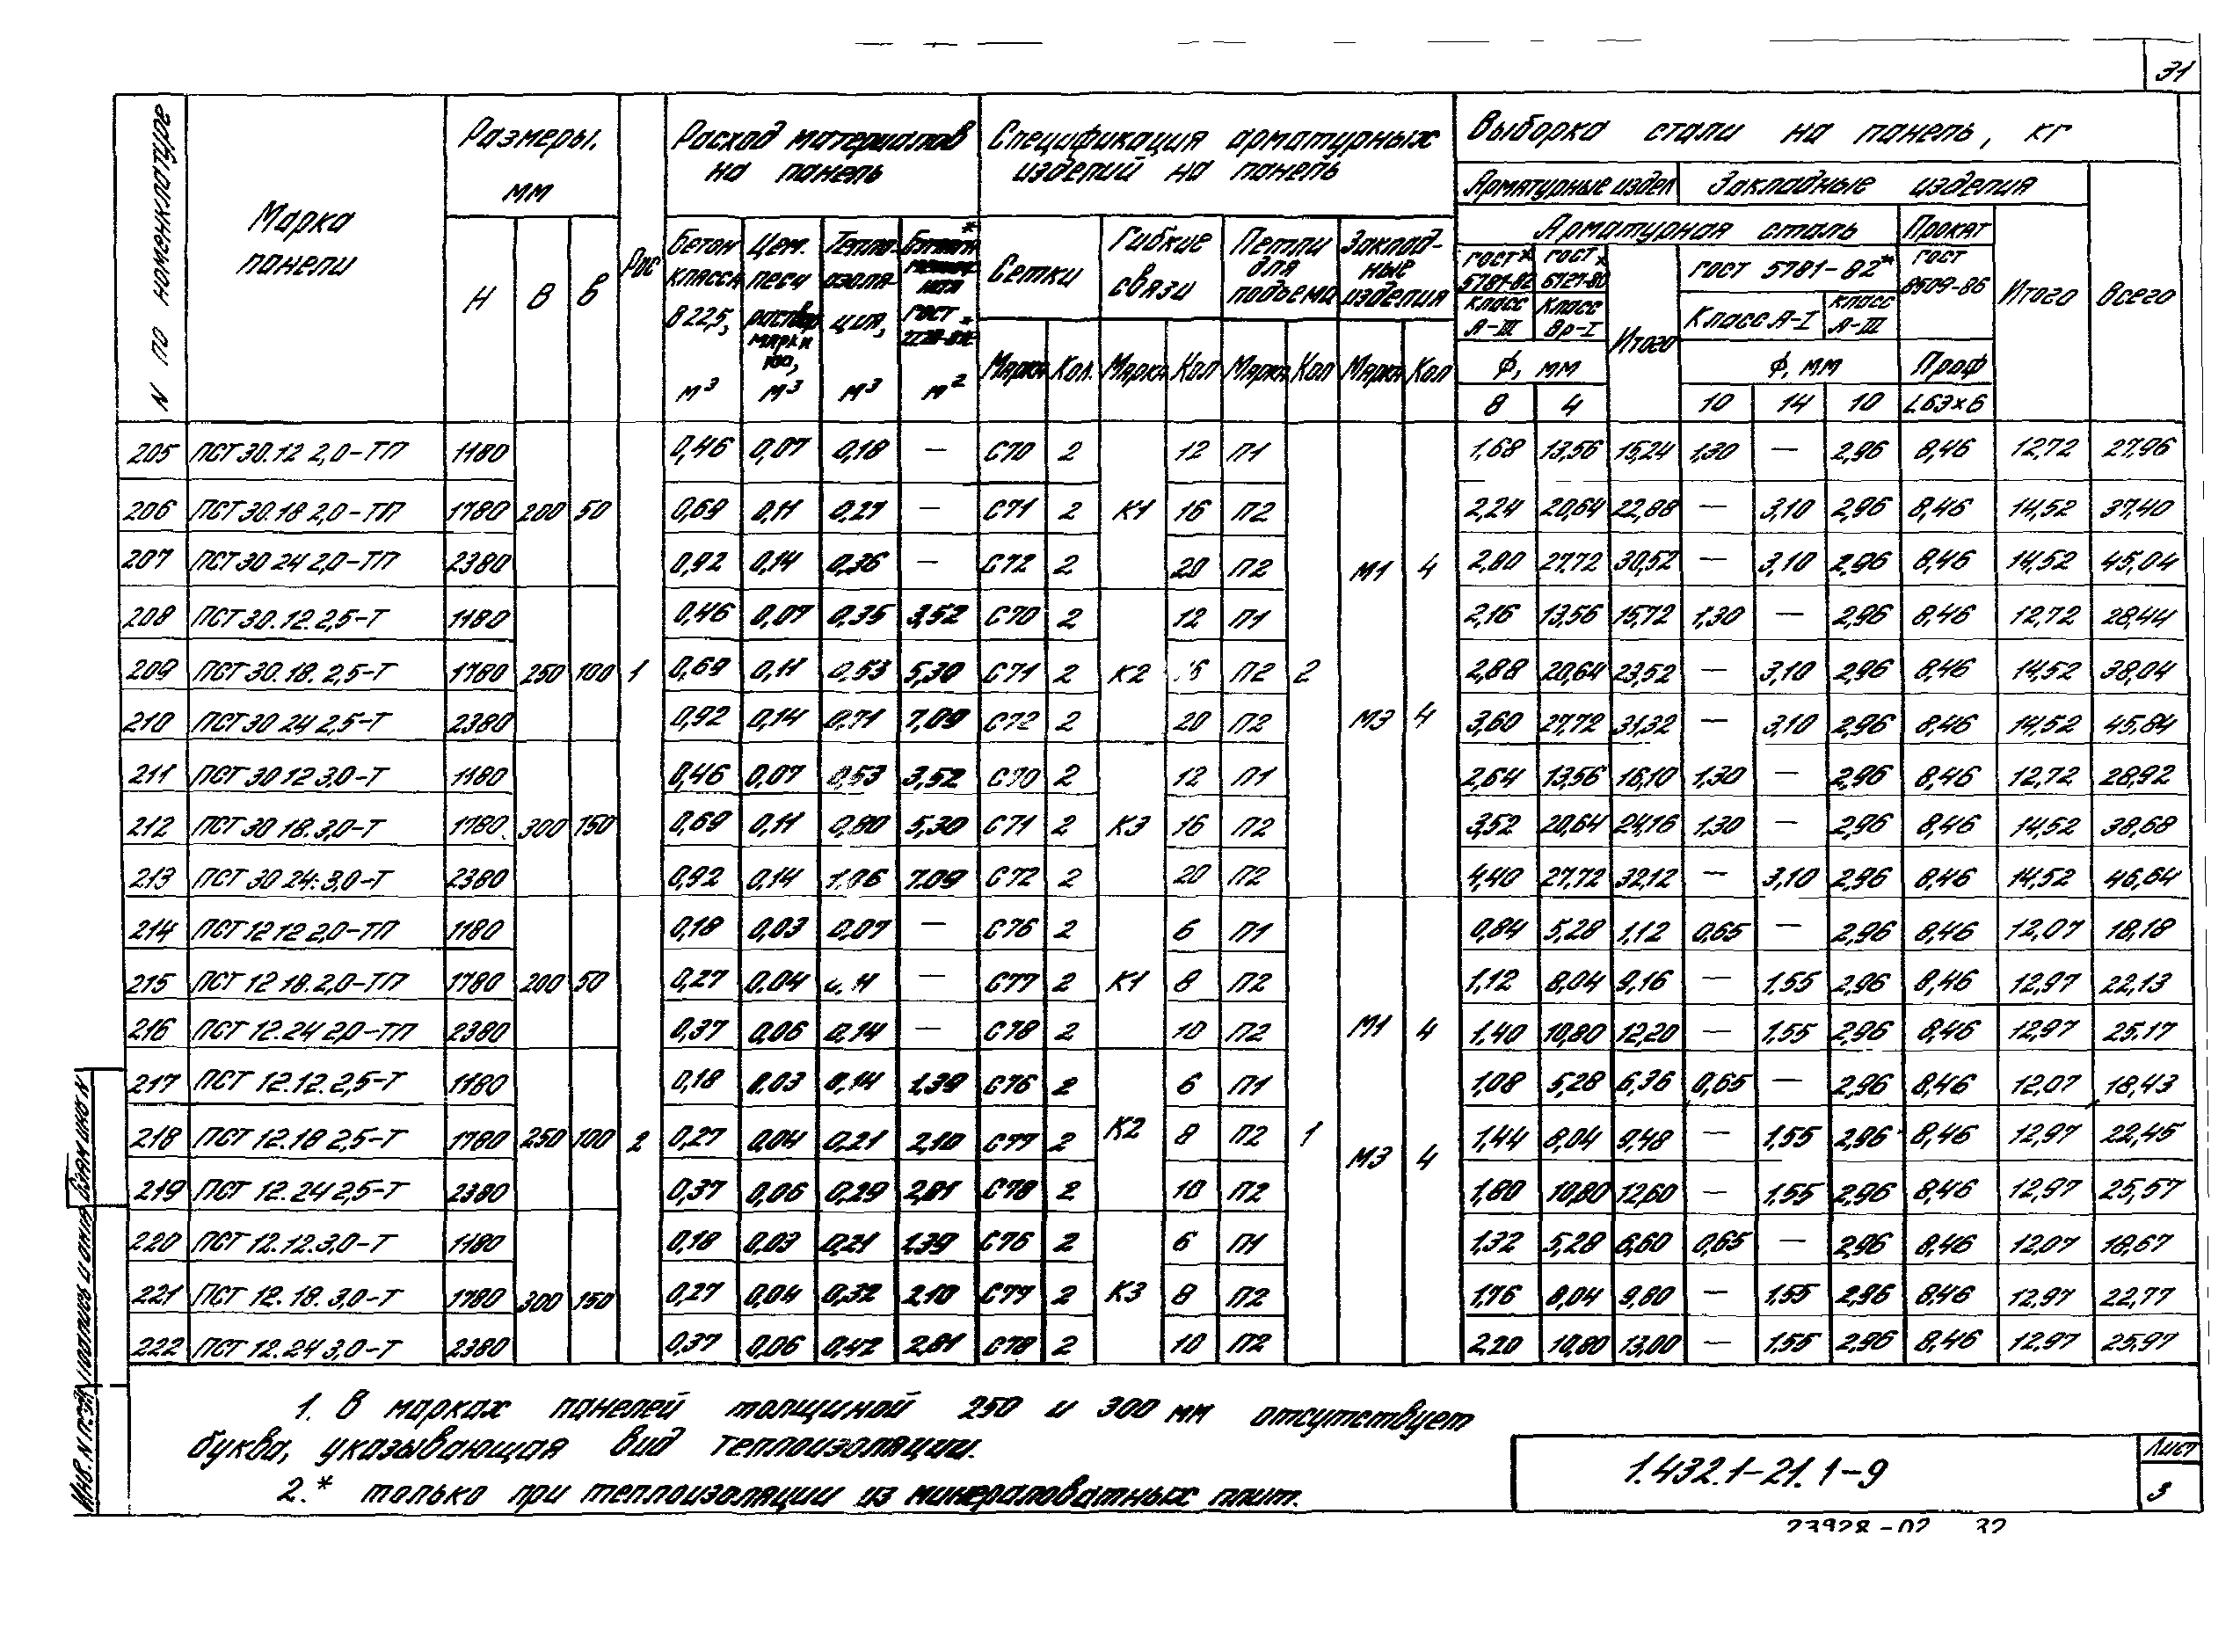 31
N по номенклатуре
Марка панели
Размеры, мм
Н В в
Рис
Расход материалов на панель
Бетон класса В 22,5, м³
Цем. песч раствор марки 100, м³
Теплоизоляция, м³
м²
Спецификация арматурных изделий на панель
Сетки
Гибкие связи
Петли для подъема
Закладные изделия
Марка Кол. Марка Кол Марка Кол Марка Кол
Выборка стали на панель, кг
Арматурные издел Закладные изделия
Арматурная сталь Прокат
ГОСТ* 5781-82 ГОСТ* 6727-80 Итого ГОСТ 5781-82* ГОСТ 8509-86 Итого Всего
класс А-III Класс Вр-I Класс А-I класс А-III
Ф, мм Ф, мм Проф
8 4 10 14 10 L63×6
205 ПСТ 30.12 2,0-ТП 1180 0,46 0,07 0,18 — С70 2 12 П1 1,68 13,56 15,24 1,30 — 2,96 8,46 12,72 27,96
206 ПСТ 30.18 2,0-ТП 1780 200 50 0,69 0,11 0,27 — С71 2 К1 16 П2 2,24 20,64 22,88 — 3,10 2,96 8,46 14,52 37,40
207 ПСТ 30 24 2,0-ТП 2380 0,92 0,14 0,36 — С72 2 20 П2 М1 4 2,80 27,72 30,52 — 3,10 2,96 8,46 14,52 45,04
208 ПСТ 30.12. 2,5-Т 1180 0,46 0,07 0,35 3,52 С70 2 12 П1 2,16 13,56 15,72 1,30 — 2,96 8,46 12,72 28,44
209 ПСТ 30.18. 2,5-Т 1780 250 100 1 0,69 0,11 0,53 5,30 С71 2 К2 16 П2 2 2,88 20,64 23,52 — 3,10 2,96 8,46 14,52 38,04
210 ПСТ 30 24 2,5-Т 2380 0,92 0,14 0,71 7,09 С72 2 20 П2 М3 4 3,60 27,72 31,32 — 3,10 2,96 8,46 14,52 45,84
211 ПСТ 30 12 3,0-Т 1180 0,46 0,07 0,53 3,52 С70 2 12 П1 2,64 13,56 16,10 1,30 — 2,96 8,46 12,72 28,92
212 ПСТ 30 18.3,0-Т 1780 300 150 0,69 0,11 0,80 5,30 С71 2 К3 16 П2 3,52 20,64 24,16 1,30 — 2,96 8,46 14,52 38,68
213 ПСТ 30 24. 3,0-Т 2380 0,92 0,14 1,06 7,09 С72 2 20 П2 4,40 27,72 32,12 — 3,10 2,96 8,46 14,52 46,64
214 ПСТ 12 12 2,0-ТП 1180 0,18 0,03 0,07 — С76 2 6 П1 0,84 5,28 1,12 0,65 — 2,96 8,46 12,07 18,18
215 ПСТ 12 18. 2,0-ТП 1780 200 50 0,27 0,04 0,11 — С77 2 К1 8 П2 1,12 8,04 9,16 — 1,55 2,96 8,46 12,97 22,13
216 ПСТ 12.24 2,0-ТП 2380 0,37 0,06 0,14 — С78 2 10 П2 М1 4 1,40 10,80 12,20 — 1,55 2,96 8,46 12,97 25,17
217 ПСТ 12.12. 2,5-Т 1180 0,18 0,03 0,14 1,39 С76 2 6 П1 1,08 5,28 6,36 0,65 — 2,96 8,46 12,07 18,43
218 ПСТ 12.18 2,5-Т 1780 250 100 2 0,27 0,04 0,21 2,10 С77 2 К2 8 П2 1 1,44 8,04 9,48 — 1,55 2,96 8,46 12,97 22,45
219 ПСТ 12.24 2,5-Т 2380 0,37 0,06 0,29 2,81 С78 2 10 П2 М3 4 1,80 10,80 12,60 — 1,55 2,96 8,46 12,97 25,57
220 ПСТ 12.12.3,0-Т 1180 0,18 0,03 0,21 1,39 С76 2 6 П1 1,32 5,28 6,60 0,65 — 2,96 8,46 12,07 18,67
221 ПСТ 12. 18. 3,0-Т 1780 300 150 0,27 0,04 0,32 2,10 С77 2 К3 8 П2 1,76 8,04 9,80 — 1,55 2,96 8,46 12,97 22,77
222 ПСТ 12.24 3,0-Т 2380 0,37 0,06 0,42 2,81 С78 2 10 П2 2,20 10,80 13,00 — 1,55 2,96 8,46 12,97 25,97
1. В марках панелей толщиной 250 и 300 мм отсутствует
буква, указывающая вид теплоизоляции.
2.* только при теплоизоляции из минераловатных плит.
1.432.1-21. 1-9
Лист
3
23928-02 32
Инв. N подл Подпись и дата Взам инв N